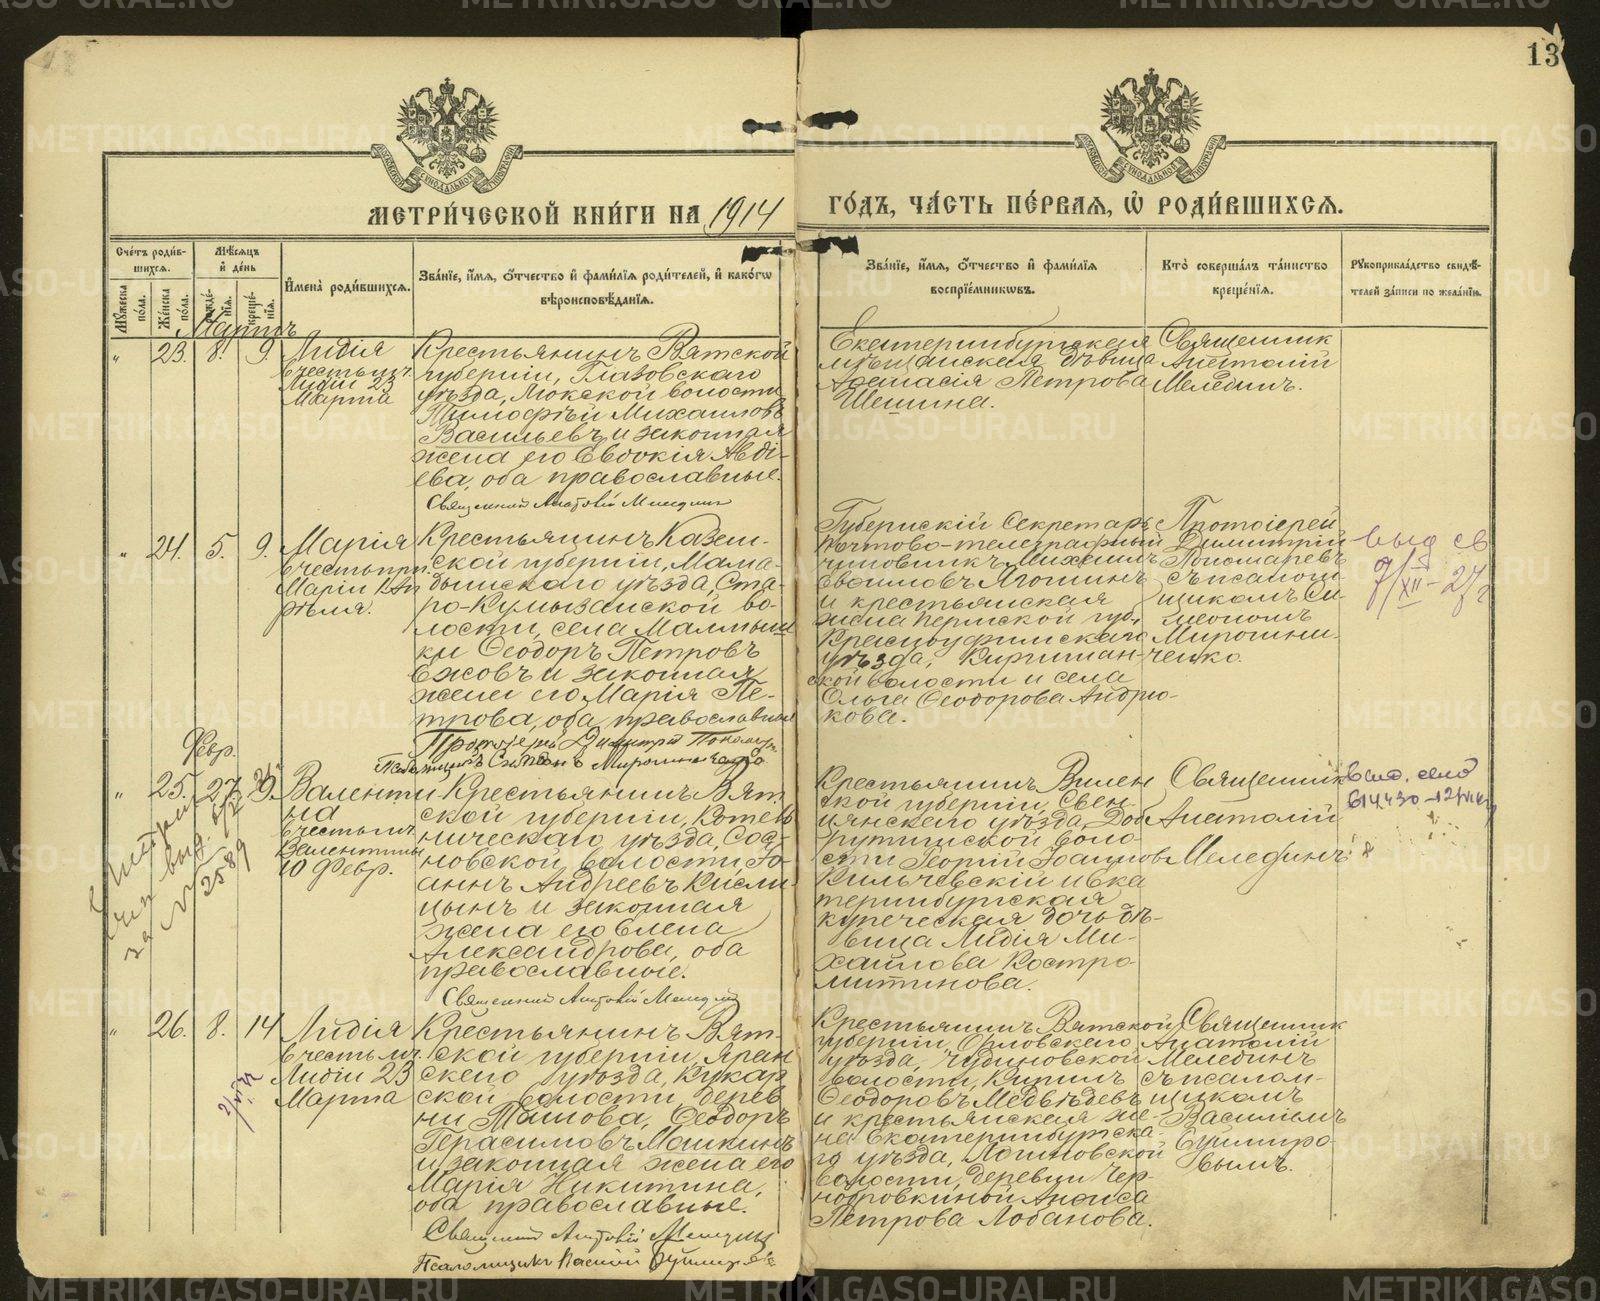 13
МЕТРИ́ЧЕСКОЙ КНИ́ГИ НА 1914 ГО́ДЪ, ЧА́СТЬ ПЕ́РВАЯ, Ѽ РОДИ́ВШИХСЯ.
Сче́тъ роди́в-
шихся.
Мꙋ́жеска по́ла.
Же́нска по́ла.
Мѣ́сяцъ
и҆ де́нь
рожде́-
нїя.
креще́-
нїя.
И҆мена̀ роди́вшихся.
Зва́нїе, и҆́мя, ѻ҆́тчество и҆ фами́лїя роди́телей, и҆ како́гѡ
вѣроисповѣ́данїя.
Зва́нїе, и҆́мя, ѻ҆́тчество и҆ фами́лїя
воспрїе́мникѡвъ.
Кто̀ соверша́лъ та́инство
креще́нїя.
Рꙋкоприкла́дство свидѣ́-
телей за́писи по жела́нїю.
Мартъ
" 23. 8. 9.
Лидія
въ честь мч.
Лидіи 23
Марта
Крестьянинъ Вятской
губерніи, Глазовскаго
уѣзда, Люкской волости
Тимофей Михаиловъ
Васильевъ и законная
жена его Евдокія Авді-
ева, оба православные.
Священникъ Анатолій Меледин
Екатеринбургская
мѣщанская дѣвица
Афанасія Петрова
Шешина.
Священник
Анатолій
Мелединъ.
" 24. 5. 9.
Марія
въ честь пр.
Маріи
Крестьянинъ Казан-
ской губерніи, Мама-
дышскаго уѣзда, Ста-
ро-Кумызанской во-
лости, села Малмыш
ки Ѳеодоръ Петровъ
Ежовъ и законная
жена его Марія Пе-
трова, оба православные
Протоіерей Димитрій Пономарев
Псаломщикъ Симеонъ Мирошниченко
Губернскій Секретарь
почтово-телеграфный
чиновникъ Михаилъ
Евдимовъ Ягошинъ
и крестьянская
жена Пермской губ.
Красноуфимскаго
уѣзда, Киришан-
ской волости и села
Ольга Ѳеодорова Андрю-
кова.
Протоіерей
Димитрій
Пономаревъ
съ псаломщ-
щикомъ Си-
меономъ
Мирошни-
ченко.
выд св
7/XII-27 г
Февр.
" 25. 27. 9.
Валенти
на
въ честь мч.
Валентины
10 Февр.
выд.
за №
2589
Крестьянинъ Вят-
ской губерніи, Котель
ническаго уѣзда, Сос-
новской волости, Іо-
аннъ Андреевъ Кисли
цынъ и законная
жена его Елена
Александрова, оба
православные.
Священникъ Анатолій Меледин
Крестьянинъ Вилен
ской губерніи, Свен-
цянскаго уѣзда,
волости
Георгій Іоанновъ
Кильчевскій и Ека
теринбургская
купеческая дочь дѣ-
вица Лидія Ми-
хаилова Костро-
митинова.
Священник
Анатолій
Мелединъ
" 26. 8. 14
Лидія
въ честь мч.
Лидіи 23
Марта
Крестьянинъ Вят-
ской губерніи, Яран
скаго уѣзда, Кукар
ской волости дерев
ни Ѳеодоръ
Герасимовъ Машкинъ
и законная жена его
Марія Никитина,
оба православные.
Священникъ Анатолій Меледин
Псаломщикъ Василій
Крестьянинъ Вятской
губерніи, Орловскаго
уѣзда, Чудиновской
волости, Кирилъ
Ѳеодоровъ Медвѣдевъ
и крестьянская же-
на Екатеринбургска
го уѣзда, Логиновской
волости, деревни Чер-
нобровкиной Анфиса
Петрова Лобанова.
Священник
Анатолій
Мелединъ
съ псалом-
щикомъ
Василіемъ
METRIKI.GASO-URAL.RU